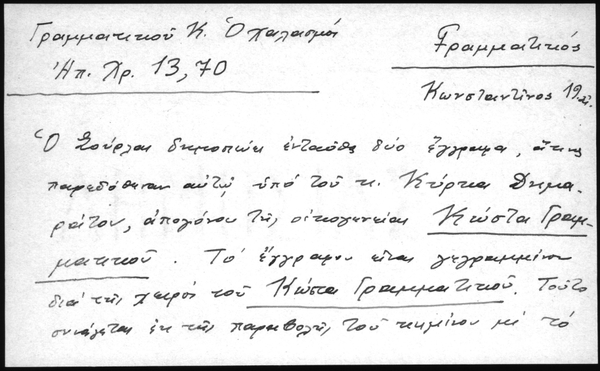 Γραμματικοῦ Κ. Ὁ χαλασμός
Ἠπ. Χρ. 13,70
Γραμματικός
Κωνσταντῖνος 19
Ὁ Σούρλας δημοσιεύει ἐνταῦθα δύο ἔγγραφα, ἅτινα
παρεδόθησαν αὐτῷ ὑπό τοῦ κ. Κύρκα Δημα-
ράτου, ἀπογόνου τῆς οἰκογενείας Κώστα Γραμ-
ματικοῦ. Τό ἔγγραφον εἶναι γεγραμμένον
διά τῆς χειρός τοῦ Κώστα Γραμματικοῦ. Τοῦτο
συνάγεται ἐκ τῆς παραβολῆς τοῦ κειμένου μέ τό